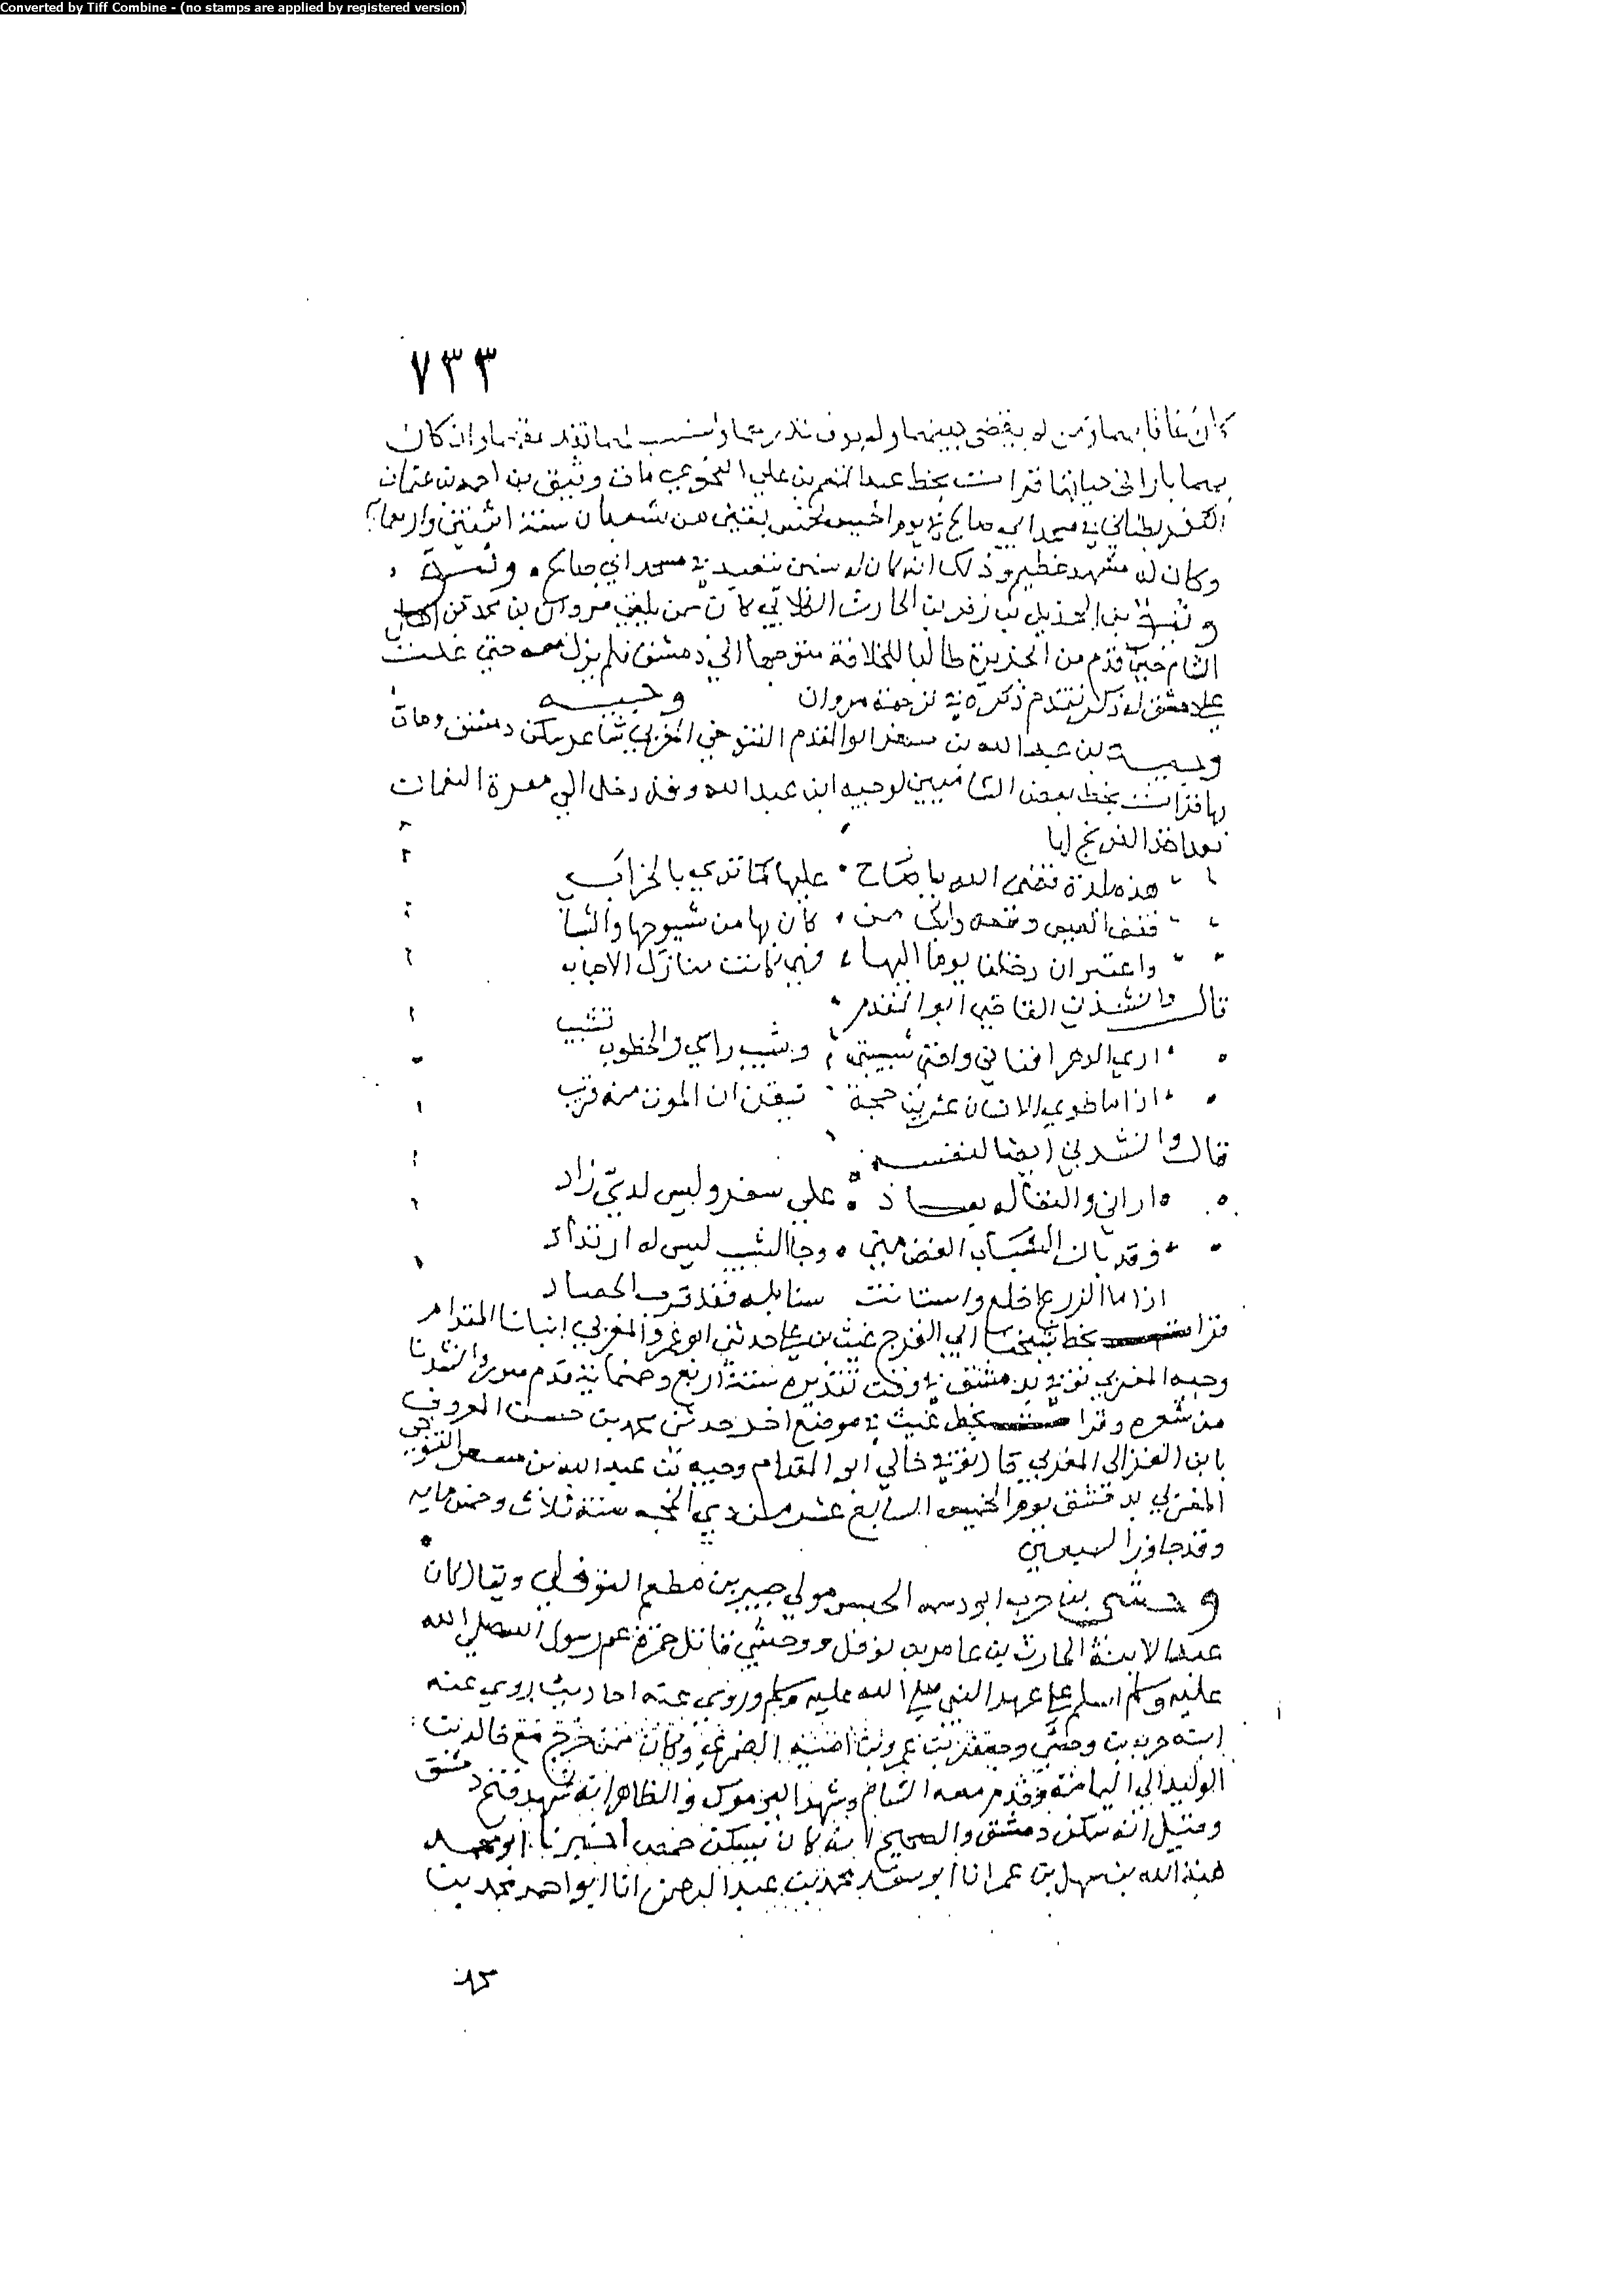 Converted by Tiff Combine - (no stamps are applied by registered version)
٧٣٣
بهما بارا في حياتهما قرات بخط عبد المنعم بن علي النحوي مات وثيق بن احمد بن عثمان
الكفربطناني في مسجد ابي صالح في يوم الخميس لخمس بقين من شعبان سنة اثنتين واربعما
وكان له مشهد عظيم وذلك انه كان له سنين يتعبد في مسجد ابي صالح
بن الهذيل بن زفر بن الحارث الكلابي كان ممن بلغني مروان بن محمد من
الشام حين قدم من الجزيرة طالبا للخلافة متوجها الي دمشق فلم يزل معه حتي غلب
علي دمشق له ذكر تقدم ذكره في ترجمة مروان وجيه
وجيه بن عبد الله بن مسعر ابو المقدم التنوخي المغربي شاعر سكن دمشق ومات
بها قرات بخط بعض الشاميين لوجيه ابن عبد الله وقد دخل الي معرة النعمان
بعد اخذ الفرنج لها
هذه بلدة قضى الله يا صاح عليها كما تري بالخراب
فقف العيس وقفه وابك من كان بها من شيوخها والشبا
واعتبر ان دخلت يوما اليها فهي كانت منازل الاحباب
قال وانشدني القاضي ابو المقدم
اري الدهر افناني وافنى شبيبتي وشيب راسي والخطوب تشيب
اذا ما طوي الانسان عشرين حجة تيقن ان الموت منه قريب
قال وانشدني ايضا لنفسه
اراني والنقاله معاد علي سفر وليس لدي زاد
وقد بان الشباب الغض مني وجا الشيب ليس له ارتداد
اذا ما الزرع اخلع واستبانت سنابله فقد قرب الحصاد
قرات بخط شيخنا ابي الفرج غيث بن علي حدثني ابو عمرو المغربي ابنانا المقدام
وجيه المغربي توفي بدمشق في وقت تقديره سنة اربع وخمماية قدم صور وانشدنا
من شعره وقرات بخط غيث في موضع اخر حدثني محمد بن حسن المعروف
بابن الغزالي المغربي قال توفي خالي ابو المقدام وجيه بن عبد الله بن مسعر التنوخي
المغربي بدمشق يوم الخميس السابع عشر من ذي الحجه سنة ثلاث وخمس مايه
وقد جاوز السبعين
وحشي بن حرب ابو دسمه الحبشي مولي جبير بن مطعم النوفلي ويقال كان
عبدا لابنة الحارث بن عامر بن نوفل ووحشي قاتل حمزة عم رسول الله صلي الله
عليه وسلم اسلم علي عهد النبي صلي الله عليه وسلم وروي عنه احاديث روي عنه
ابنه حرب بن وحشي وجعفر بن عمرو بن امية الضمري وكان ممن خرج مع خالد بن
الوليد الي اليمامة وقدم معه الشام وشهد اليرموك والظاهر انه شهد فتح دمشق
وقيل انه سكن دمشق والصحيح انه كان يسكن حمص اخبرنا ابو محمد
هبة الله بن سهل بن عمر انا ابو سعد محمد بن عبد الرحمن انا ابو احمد محمد بن